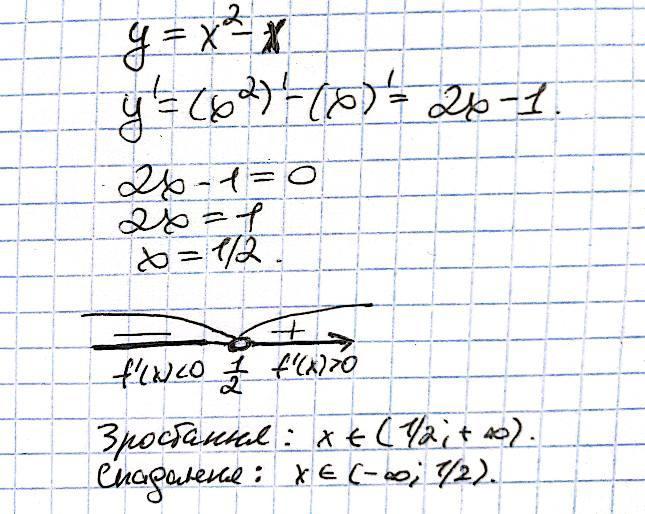 y = x² - x
y' = (x²)' - (x)' = 2x - 1.
2x - 1 = 0
2x = 1
x = 1/2.
− +
f'(x)<0 1/2 f'(x)>0
Зростання: x ∈ (1/2; +∞).
Спадання: x ∈ (-∞; 1/2).